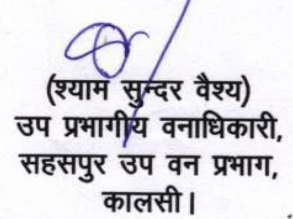 (श्याम सुन्दर वैश्य)
उप प्रभागीय वनाधिकारी,
सहसपुर उप वन प्रभाग,
कालसी।